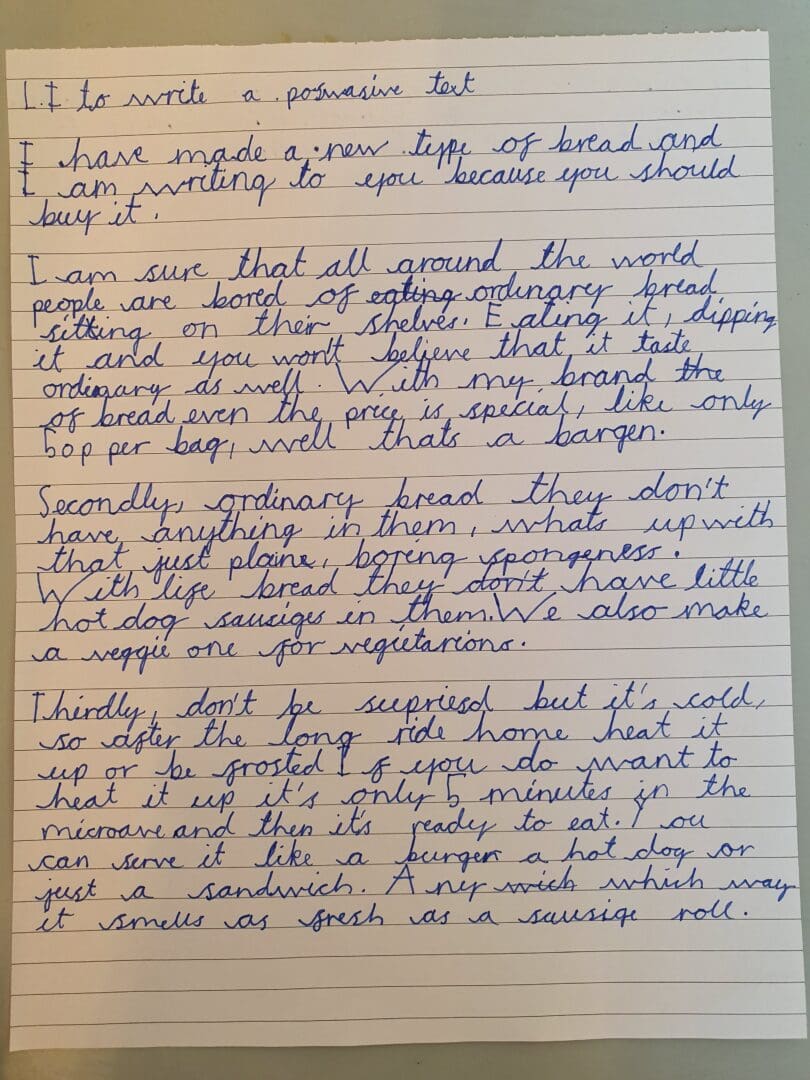 L.I to write a poswasive text
I have made a new type of bread and
I am writing to you because you should
buy it.
I am sure that all around the world
people are bored of eating ordinary bread
sitting on their shelves. Eating it, dipping
it and you won't believe that it taste
ordinary as well. With my brand the
of bread even the price is special, like only
50p per bag, well thats a bargen.
Secondly, ordinary bread they don't
have anything in them, whats up with
that just plane, boreng spongeness.
With life bread they don't have little
hot dog sauciges in them. We also make
a veggie one for vegietarions.
Thirdly, don't be supriesd but it's cold,
so after the long ride home heat it
up or be frosted If you do want to
heat it up it's only 5 minutes in the
microave and then it's ready to eat. You
can serve it like a burger a hot dog or
just a sandwich. Any wich which way
it smells as fresh as a sausige roll.